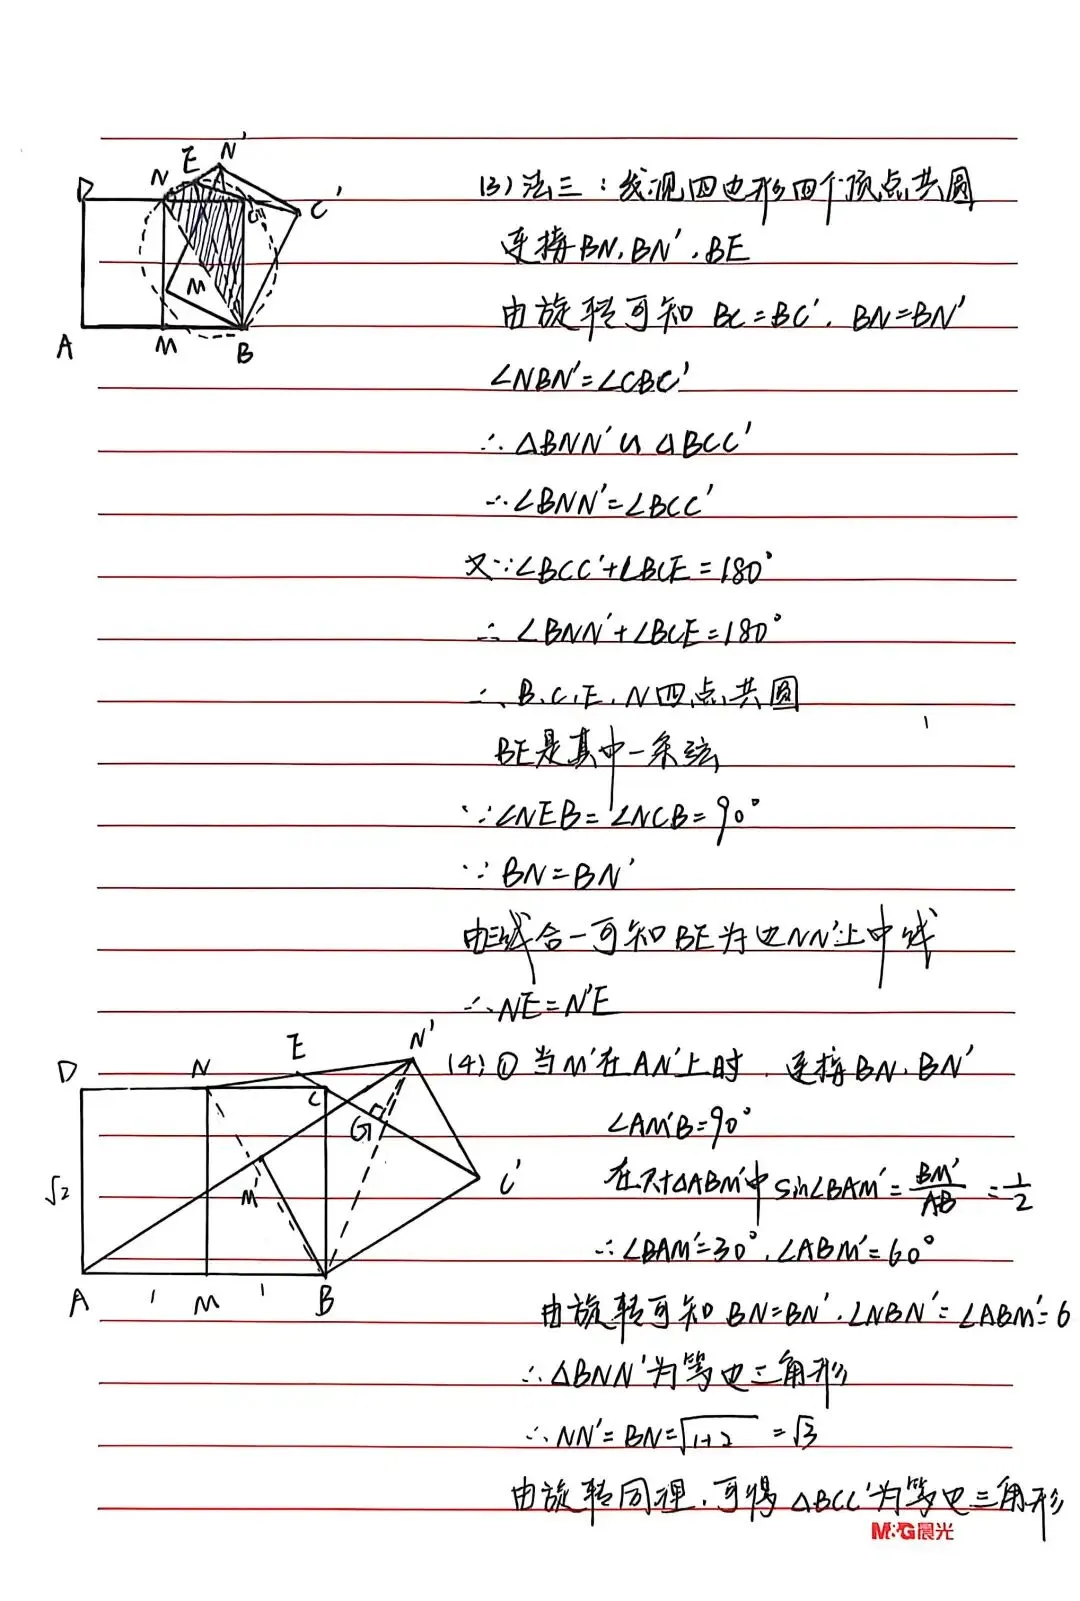 (3)法三：发现四边形四个顶点共圆
连接BN.BN′.BE
由旋转可知 BC=BC′. BN=BN′
∠NBN′=∠CBC′
∴△BNN′∽△BCC′
∴∠BNN′=∠BCC′
又∵∠BCC′+∠BCE=180°
∴∠BNN′+∠BCE=180°
∴B.C.E.N四点共圆
BE是其中一条弦
∵∠NEB=∠NCB=90°
∵BN=BN′
由三线合一可知BE为边NN′上中线
∴NE=N′E
(4)①当M′在AN′上时.连接BN.BN′
∠AM′B=90°
在Rt△ABM′中sin∠BAM′=BM′/AB=1/2
∴∠BAM′=30°.∠ABM′=60°
由旋转可知BN=BN′.∠NBN′=∠ABM′=6
∴△BNN′为等边三角形
∴NN′=BN=√1+2=√3
由旋转同理.可得△BCC′为等边三角形
M&G晨光
D N E N′ C C′
M′
A M B
D N E N′ C
G
√2 M′ C′
A 1 M 1 B